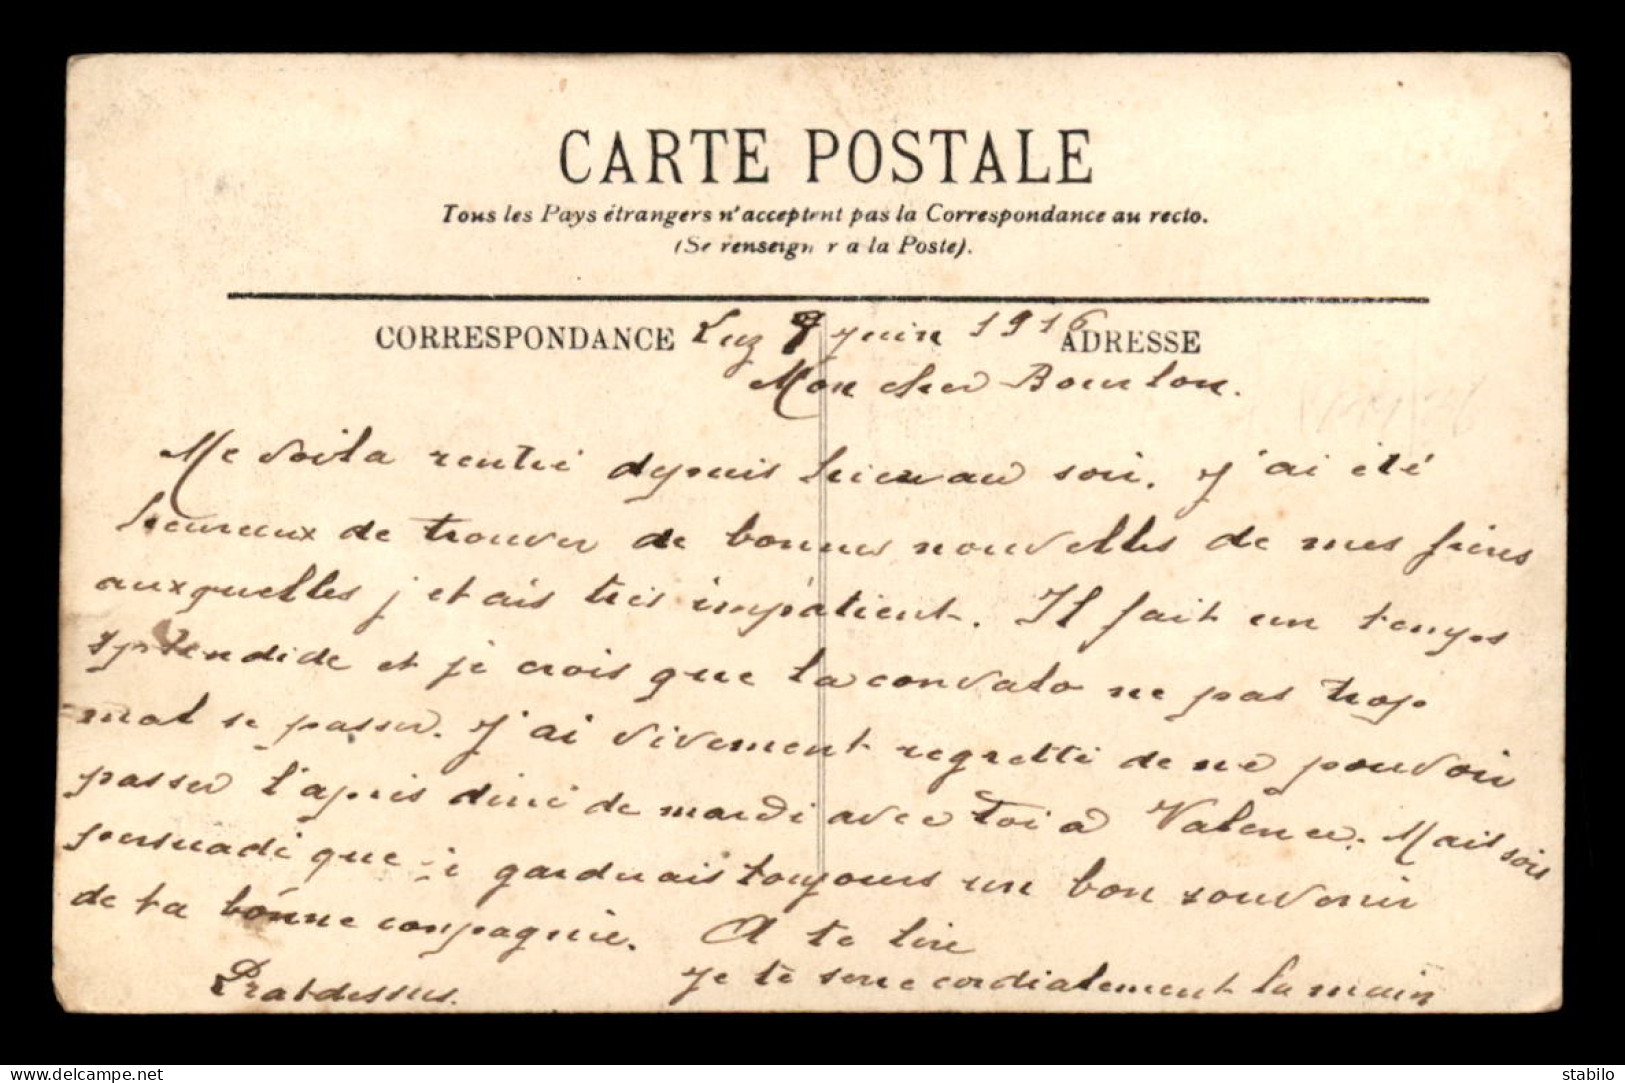 CARTE POSTALE
Tous les Pays étrangers n'acceptent pas la Correspondance au recto.
(Se renseign r a la Poste).
CORRESPONDANCE
ADRESSE
Luz 8 juin 1916
Mon cher Bourlon.
Me voila rentré depuis hier au soir. J'ai été
heureux de trouver de bonnes nouvelles de mes frères
auxquelles j etais très impatient. Il fait un temps
splendide et je crois que la convalo ne pas trop
mal se passer. J'ai vivement regretté de ne pouvoir
passer l'après diné de mardi avec toi a Valence. Mais sois
persuadé que je garderais toujours un bon souvenir
de ta bonne compagnie. A te lire
Je te serre cordialement la main
Pratdessus.
delcampe.net
stabilo